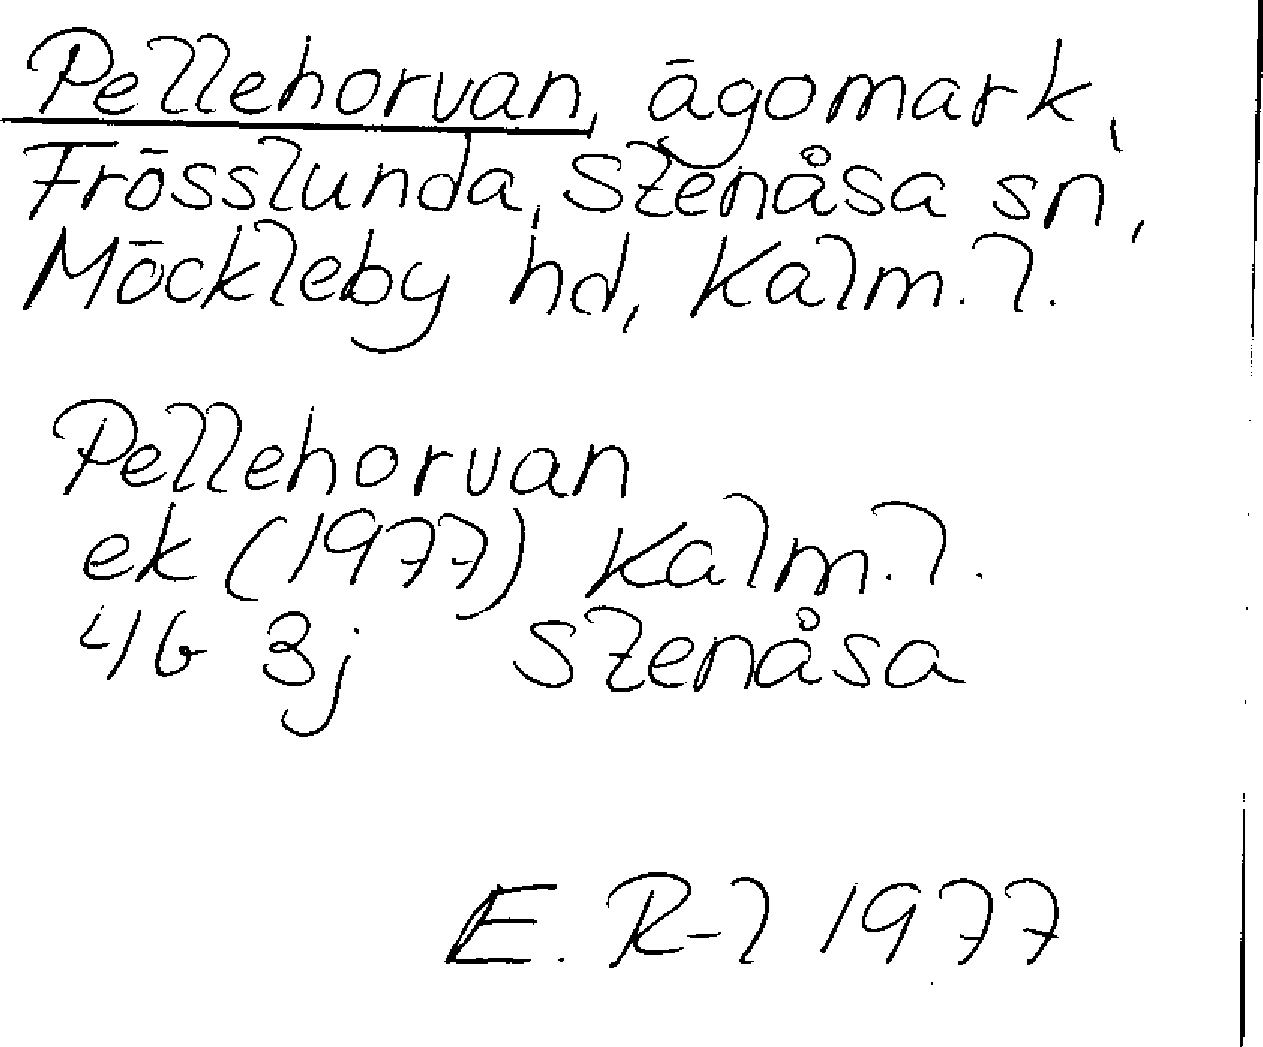 Pellehorvan, ägomark,
Frösslunda, Stenåsa sn,
Möckleby hd, Kalm. l.
Pellehorvan
ek (1977) Kalm. l.
4G 3j Stenåsa
E. R-l 1977